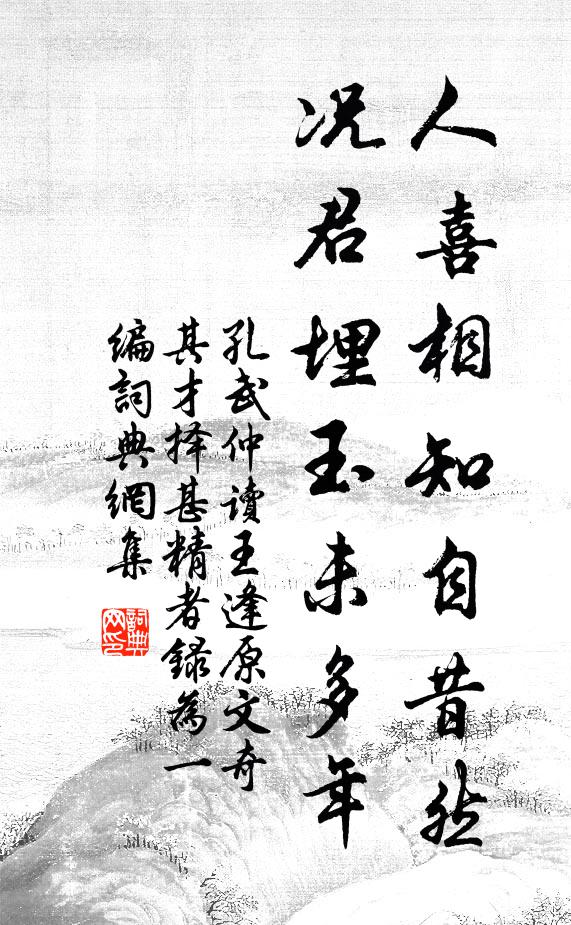 人喜相知自昔然
况君埋玉未多年
孔武仲读王逢原文奇
其才择甚精者録為一
编詞典網集
詞典